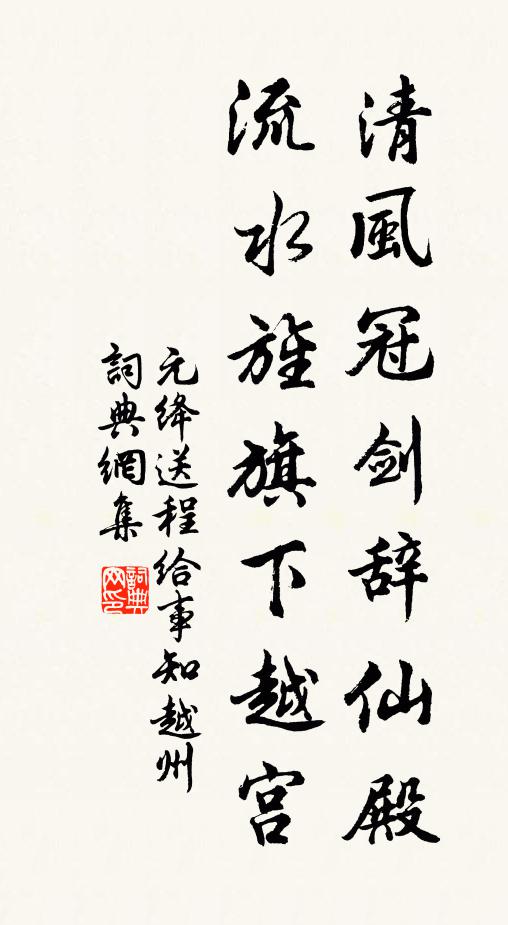 清風冠剑辞仙殿
流水旌旗下越宫
元绛送程给事知越州
詞典網集
詞典网印